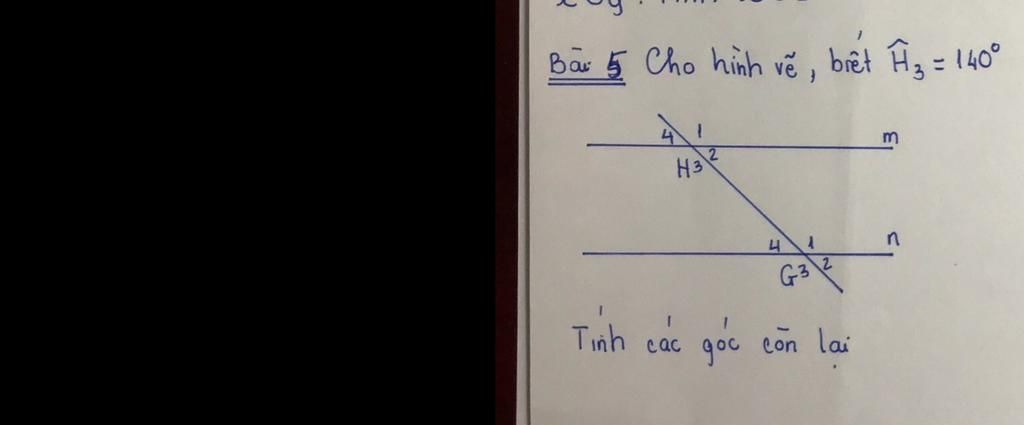 Bài 5 Cho hình vẽ, biết Ĥ₃ = 140°
4 1 m
2
H 3
4 1 n
G 3 2
Tính các góc còn lại